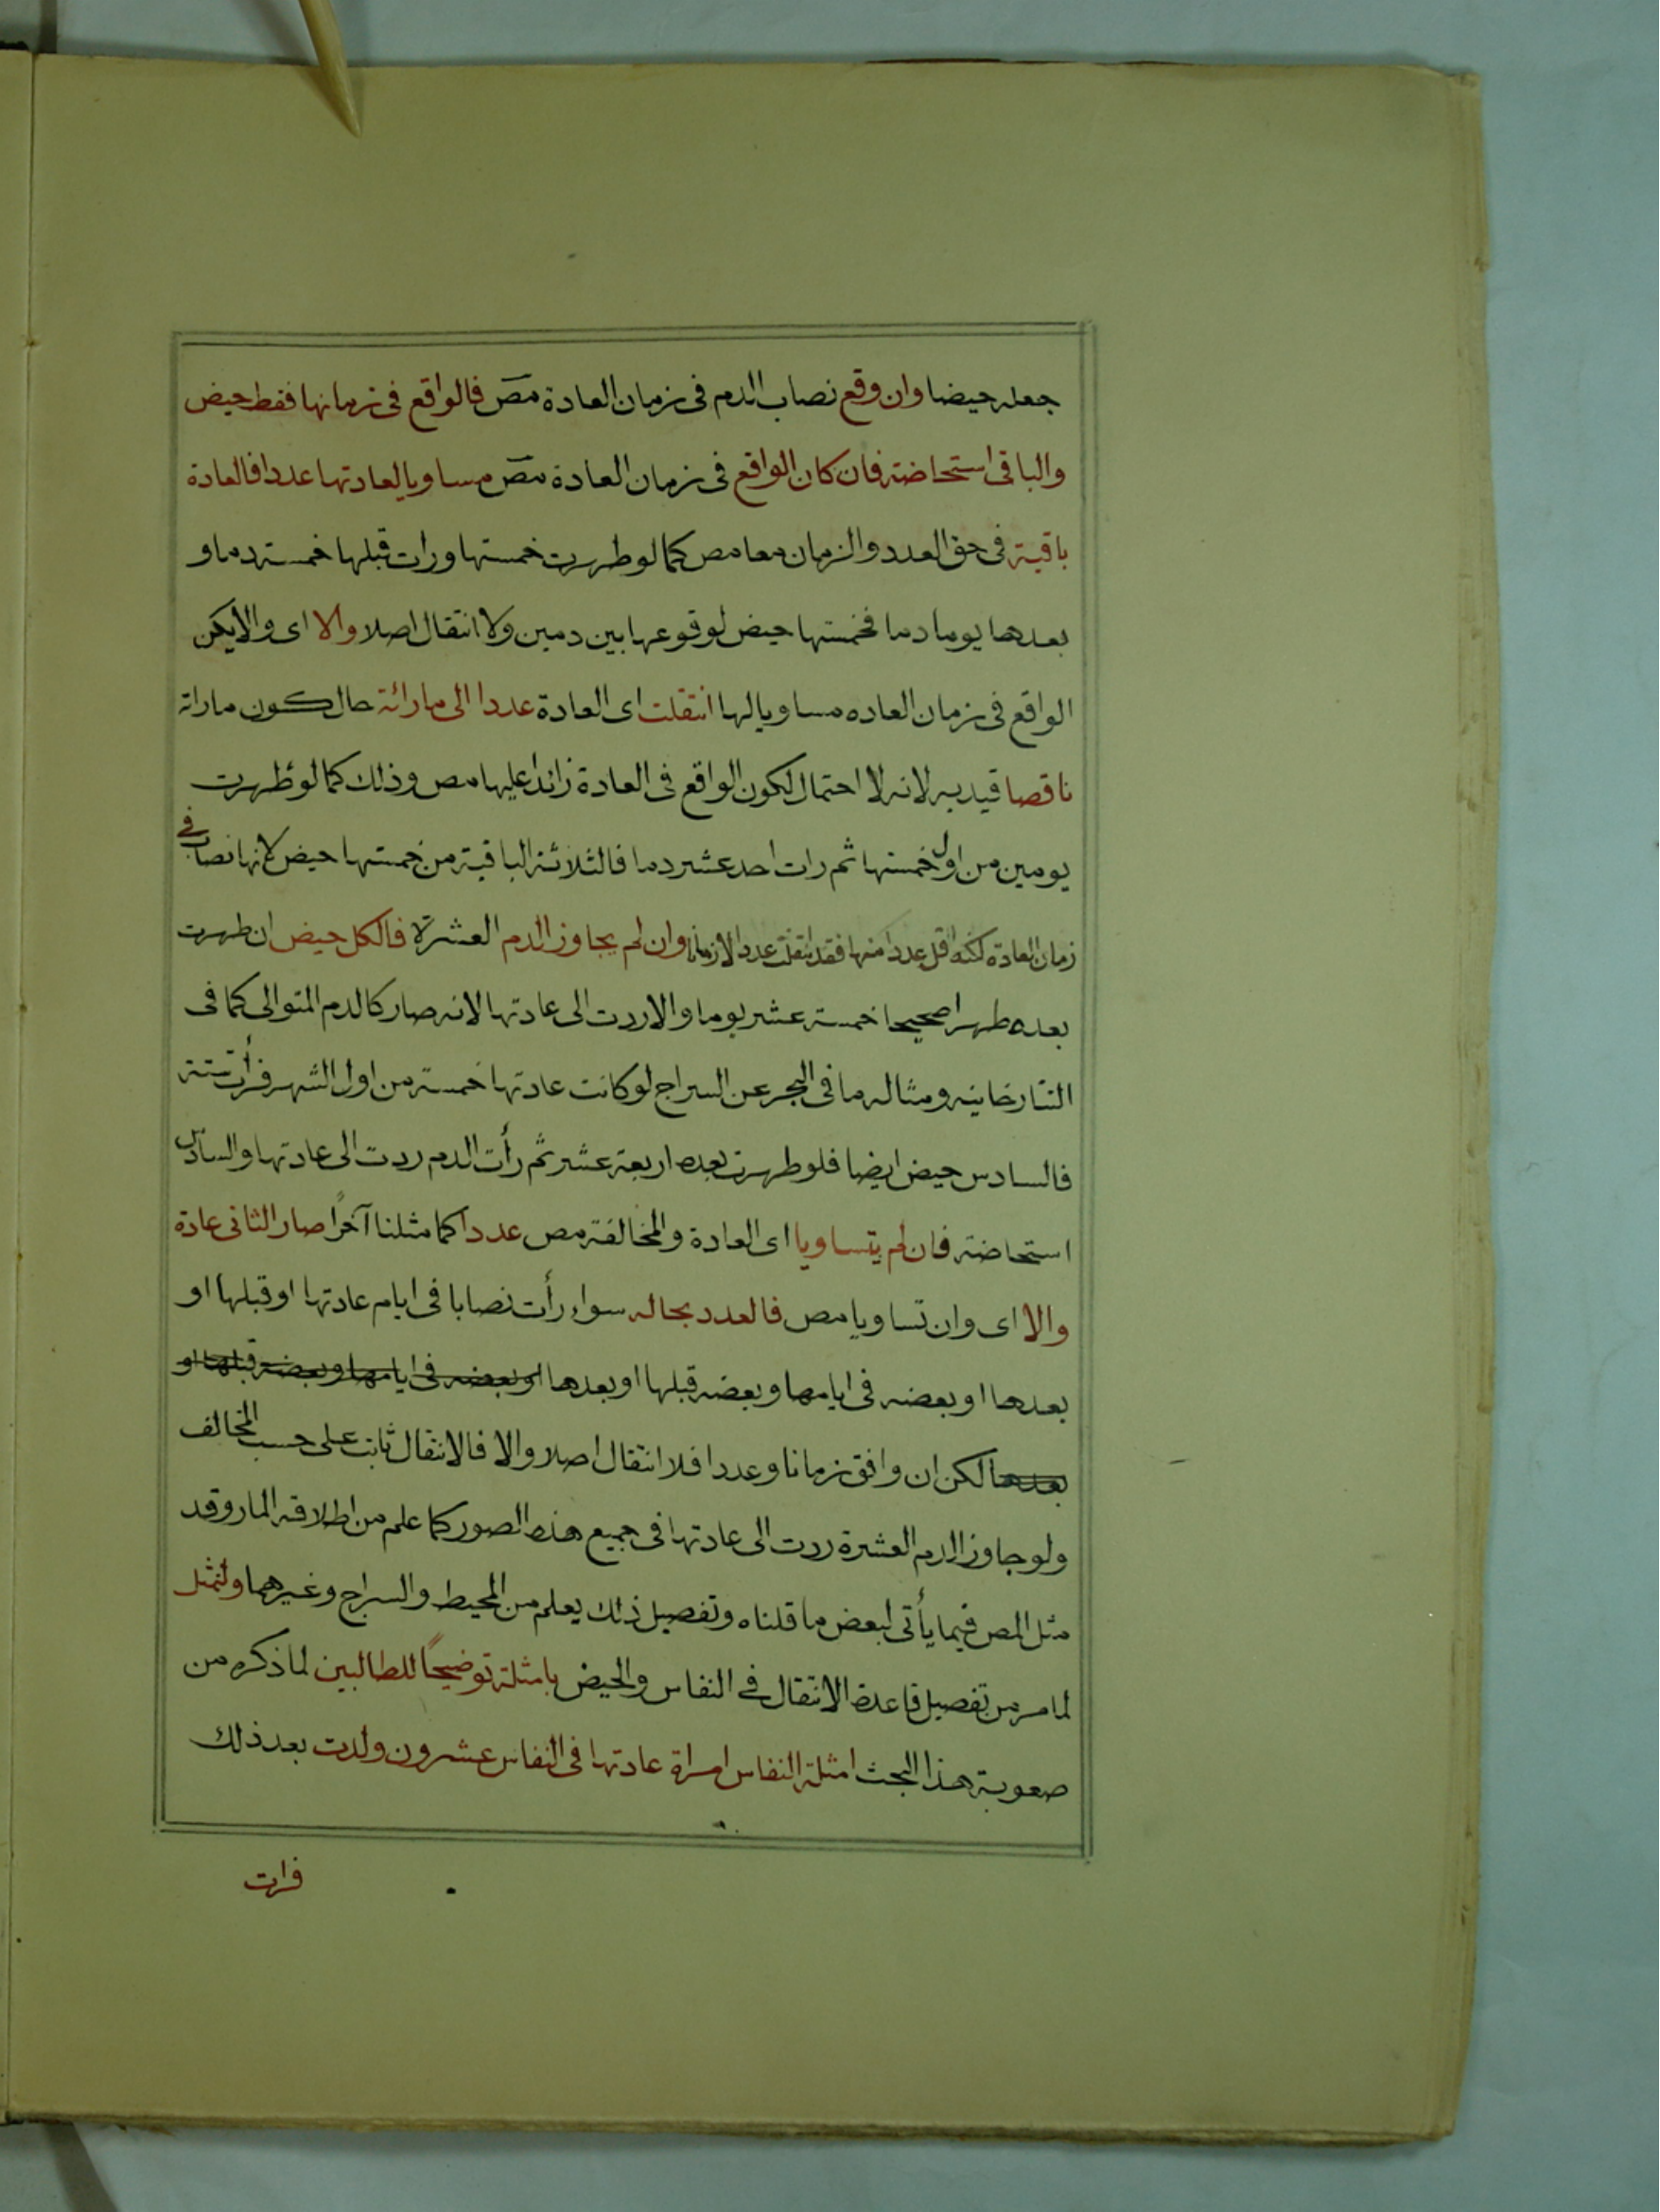 جعله حيضا وان وقع نصاب الدم فى زمان العادة مص فالواقع فى زمانها فقط حيض
والباقى استحاضة فان كان الواقع فى زمان العادة مص مساويا لعادتها عددا فالعادة
باقية فى حق العدد والزمان معا مص كما لو طهرت خمستها ورات قبلها خمسة دما و
بعدها يوما دما فخمستها حيض لوقوعها بين دمين ولا انتقال اصلا والا اى والايكن
الواقع فى زمان العاده مساويا لها انتقلت اى العادة عددا الى مارائة حال كون ماراته
ناقصا قيد به لانه لا احتمال لكون الواقع فى العادة زائدا عليها مص وذلك كما لو طهرت
يومين من اول خمستها ثم رات احد عشر دما فالثلاثة الباقية من خمستها حيض لانها نصاب فى
زمان العادة لكنه اقل عددا منها فقد انتقلت عددا لا زمانا وان لم يجاوز الدم العشرة فالكل حيض ان طهرت
بعده طهرا صحيحا خمسة عشر يوما والا ردت الى عادتها لانه صار كالدم المتوالى كما فى
التتارخانيه ومثاله ما فى البحر عن السراج لو كانت عادتها خمسة من اول الشهر فرأت ستة
فالسادس حيض ايضا فلو طهرت بعده اربعة عشر ثم رأت الدم ردت الى عادتها والسادس
استحاضة فان لم يتساويا اى العادة والمخالفة مص عددا كما مثلنا آخرًا صار الثانى عادة
والا اى وان تساويا مص فالعدد بحاله سواء رأت نصابا فى ايام عادتها او قبلها او
بعدها او بعضه فى ايامها وبعضه قبلها او بعدها او بعضه فى ايامها وبعضه قبلها او
بعدها لكن ان وافق زمانا وعددا فلا انتقال اصلا والا فالانتقال ثابت على حسب المخالف
ولو جاوز الدم العشرة ردت الى عادتها فى جميع هذه الصور كما علم من اطلاقه المار وقد
مثل المص فيما يأتى لبعض ما قلناه وتفصيل ذلك يعلم من المحيط والسراج وغيرهما ولنمثل
لما مر من تفصيل قاعدة الانتقال فى النفاس والحيض بامثلة توضيحًا للطالبين لما ذكره من
صعوبة هذا البحث امثلة النفاس امراة عادتها فى النفاس عشرون ولدت بعد ذلك
فرات